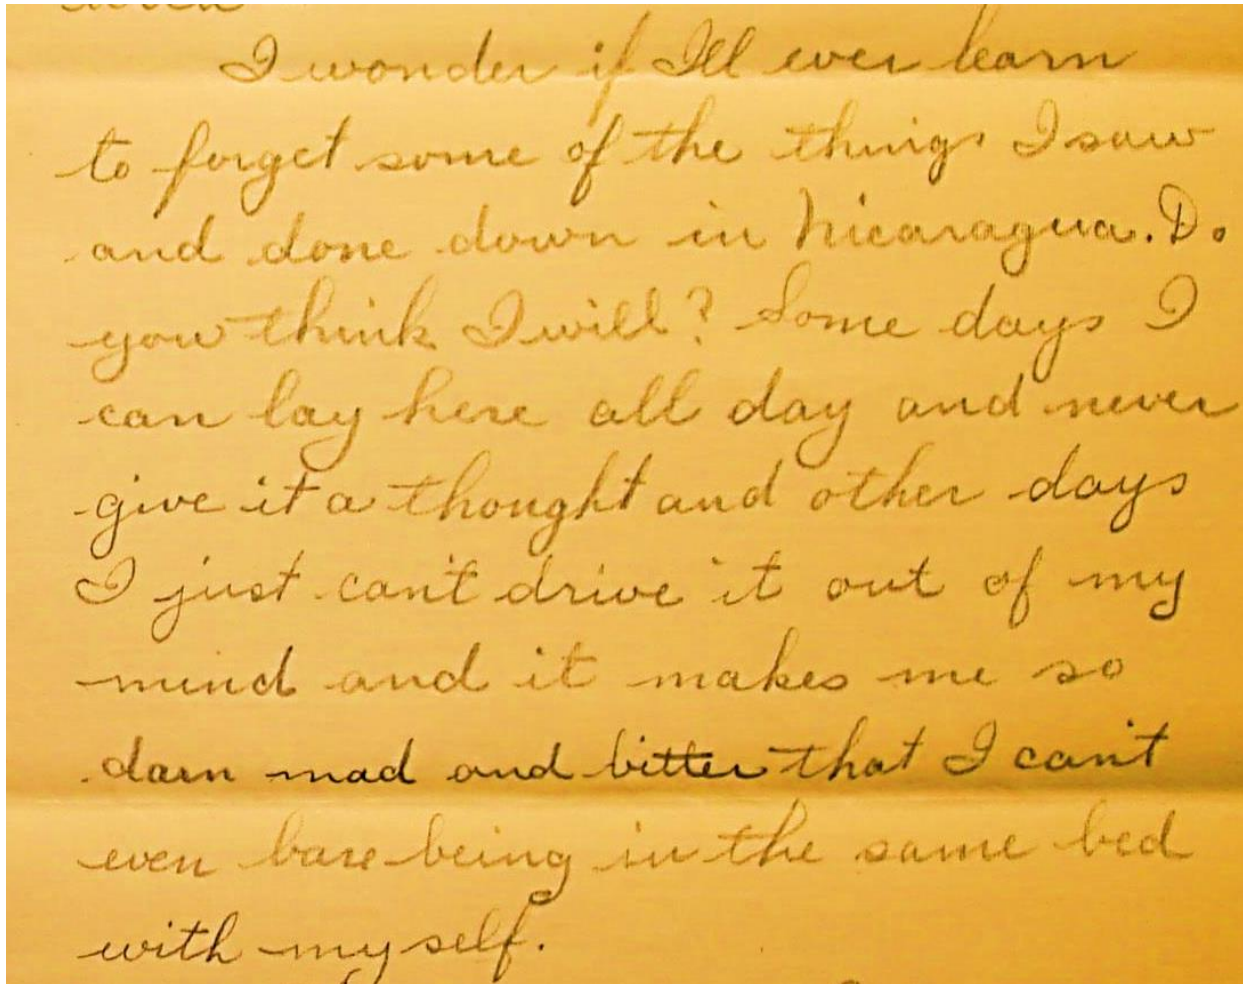 I wonder if Ill ever learn
to forget some of the things I saw
and done down in Nicaragua. Do
you think I will? Some days I
can lay here all day and never
give it a thought and other days
I just can't drive it out of my
mind and it makes me so
darn mad and bitter that I can't
even bare being in the same bed
with myself.